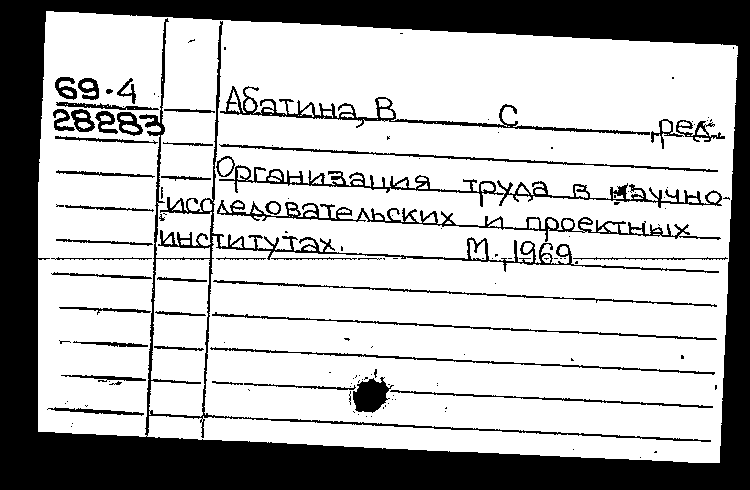 69-4
28283
Абатина, В С ,ред.
Организация труда в научно-
-исследовательских и проектных
институтах. М., 1969.